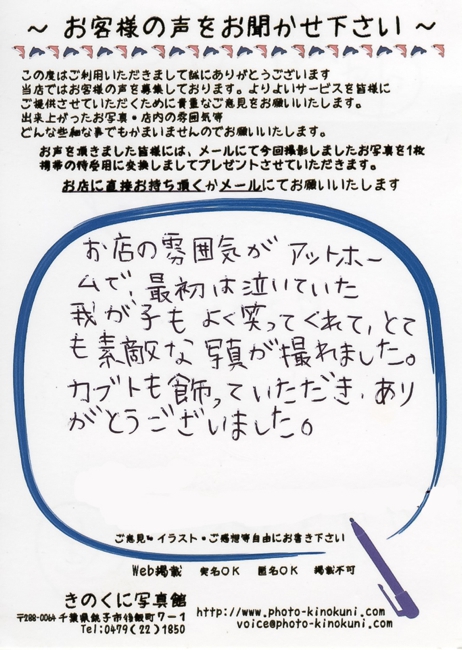 ～ お客様の声をお聞かせ下さい ～
この度はご利用いただきまして誠にありがとうございます
当店ではお客様の声を募集しております。よりよいサービスを皆様に
ご提供させていただくために貴重なご意見をお願いいたします。
出来上がったお写真・店内の雰囲気等
どんな些細な事でもかまいませんのでお願いいたします。
お声を頂きました皆様には、メールにて今回撮影しましたお写真を1枚
携帯の待受用に変換しましてプレゼントさせていただきます。
お店に直接お持ち頂くかメールにてお願いいたします
お店の雰囲気が アットホー
ムで、最初は泣いていた
我が子もよく笑ってくれて、とて
も素敵な写真が撮れました。
カブトも飾っていただき、あり
がとうございました。
ご意見・イラスト・ご感想等自由にお書き下さい
Web掲載 実名OK 匿名OK 掲載不可
きのくに写真館
〒288-0064 千葉県銚子市
町7-1
Tel:0479(22)1850
http://www.photo-kinokuni.com/
voice@photo-kinokuni.com